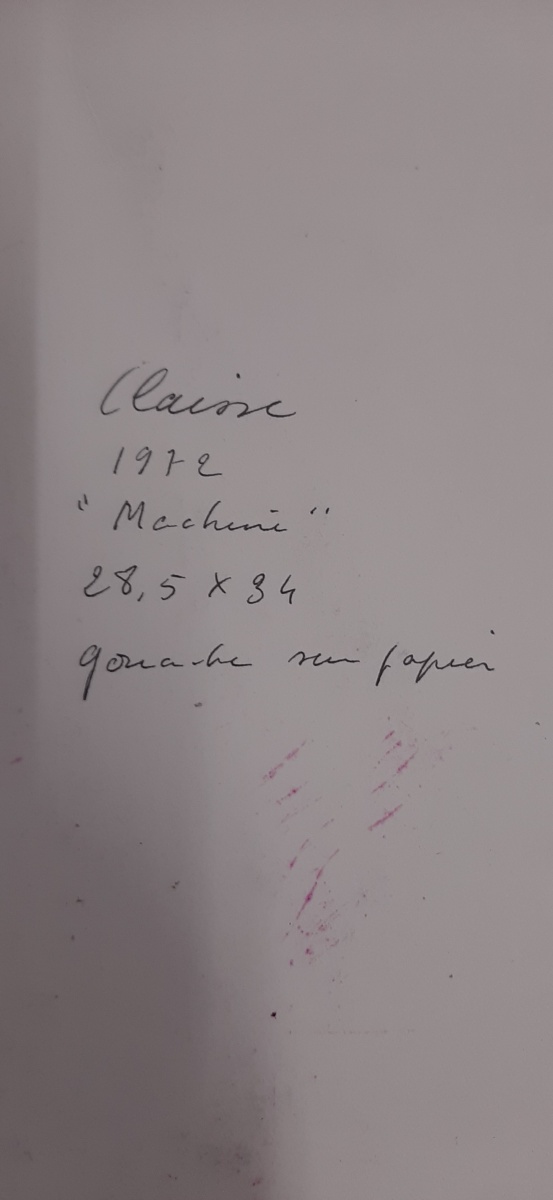 Claisse
1972
"Machine"
28,5 x 34
gouache sur papier